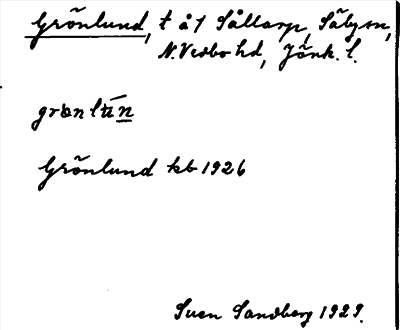 Grönlund, t å 1 Sållarp, Säby sn,
N. Vedbo hd, Jönk. l.
grœnlún
Grönlund kb 1926
Sven Sandberg 1929.